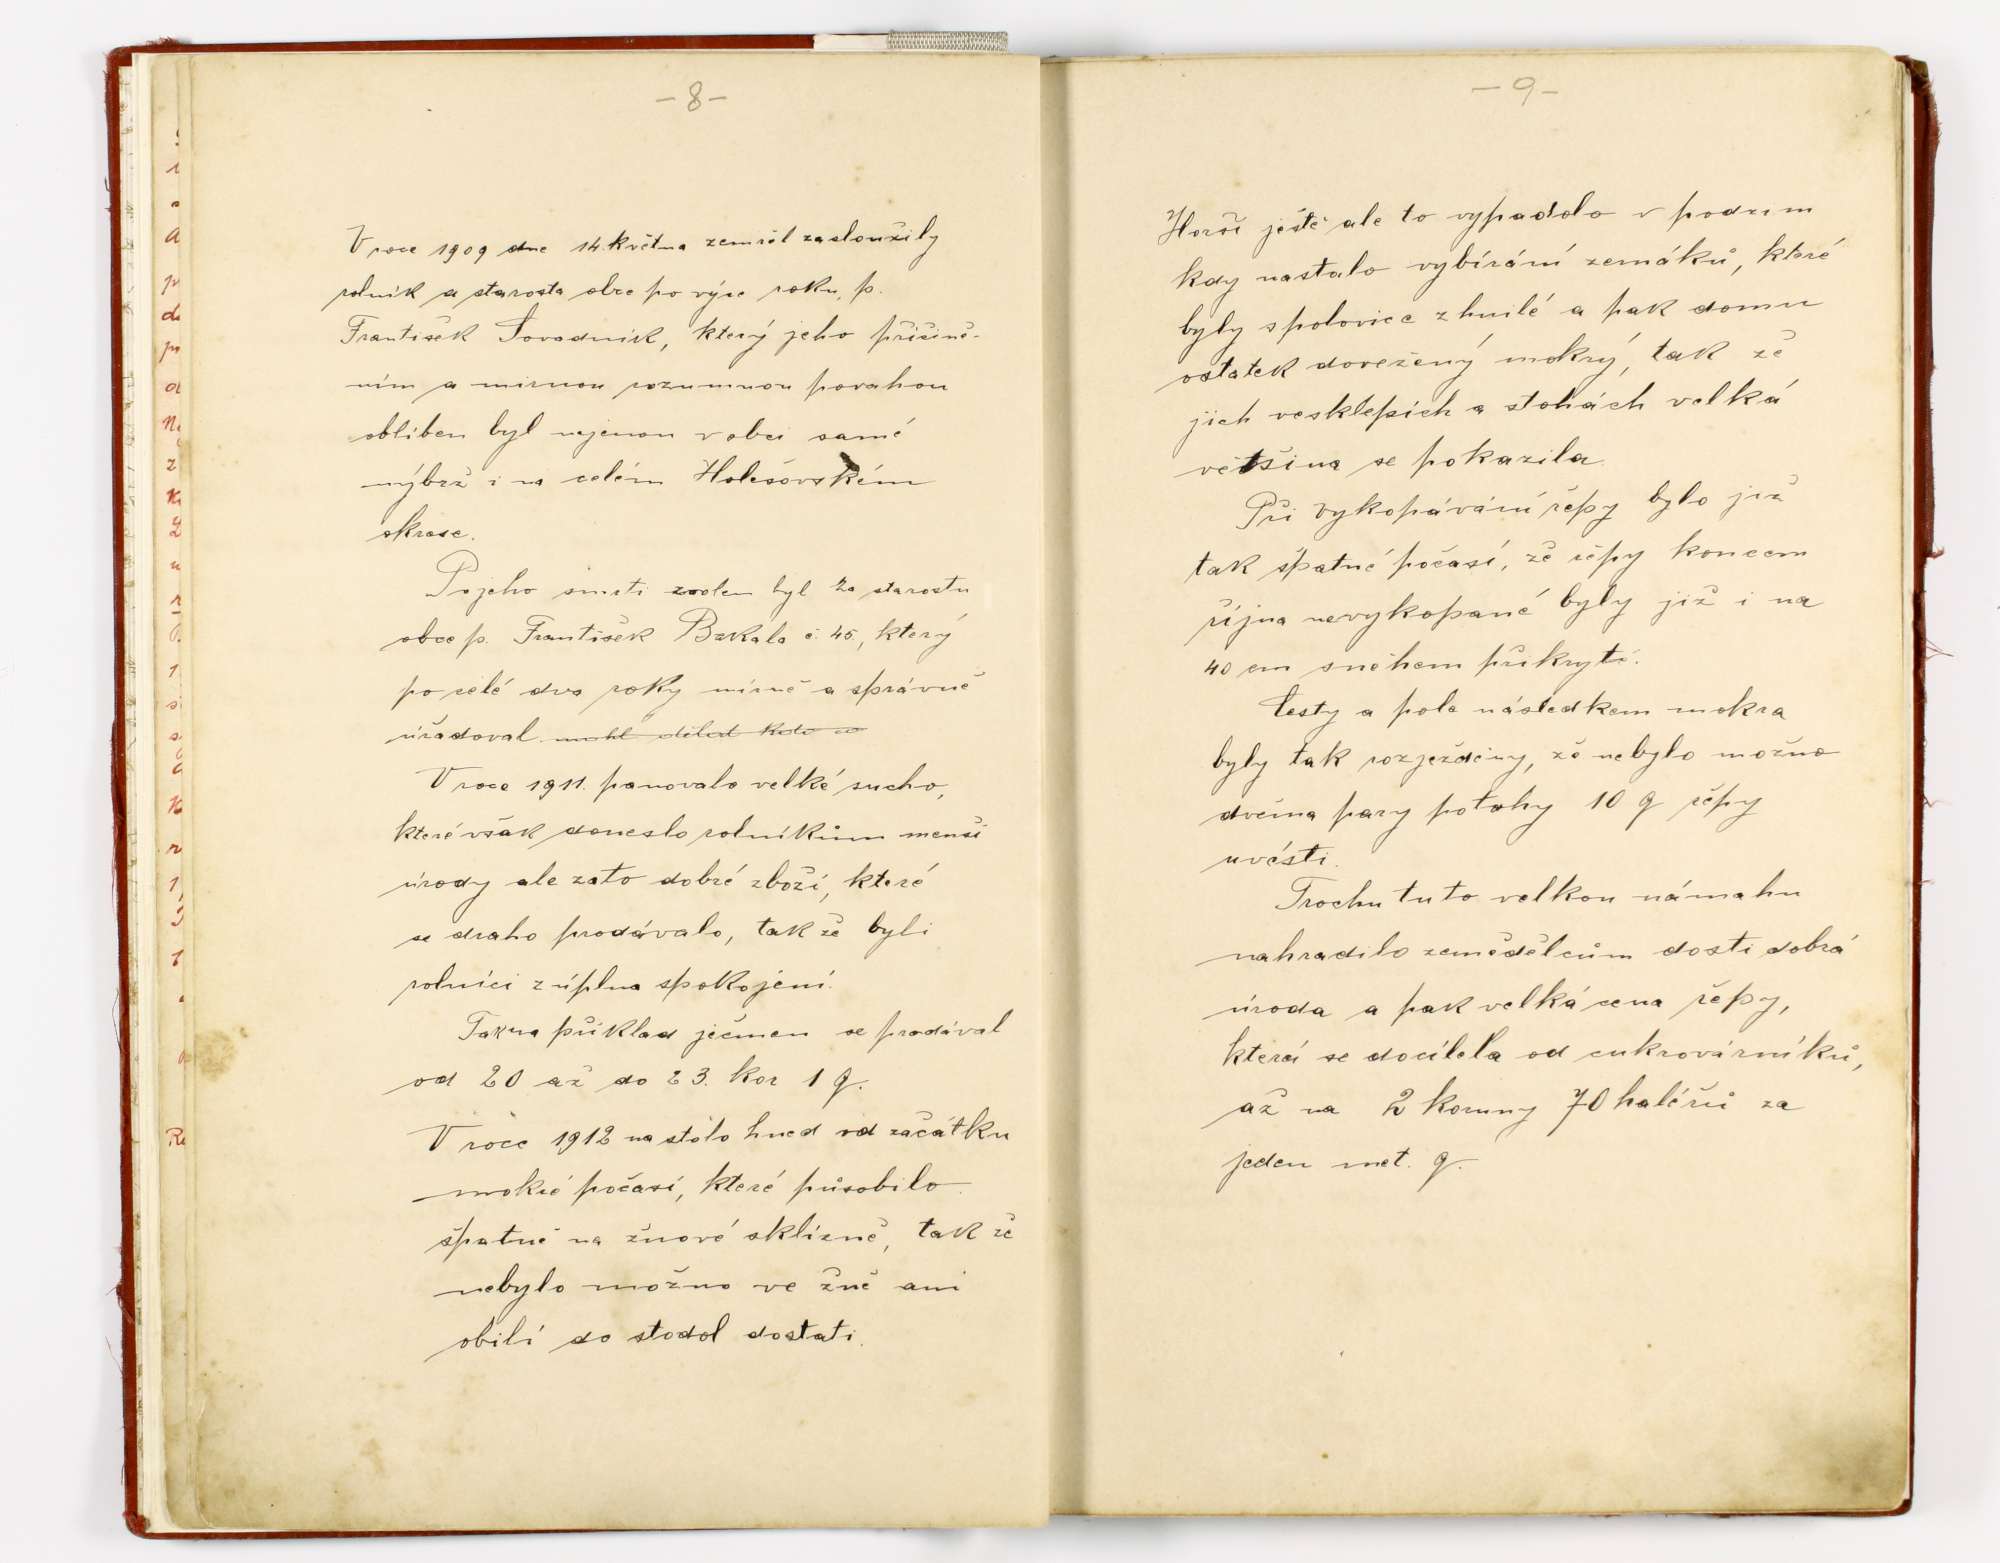 - 8 -
V roce 1909 dne 14. května zemřel zasloužily
rolník a starosta obce po výce roku, p.
František Sovadník, který jeho přičině-
ním a mirnou rozumnou povahou
obliben byl nejenom v obci samé
nýbrž i na celém Holešovském
okrese.
Po jeho smrti zvolen byl za starostu
obce p. František Bzkala č. 45, který
po celé dva roky mírně a správně
úřadoval
V roce 1911. panovalo velké sucho,
které však doneslo rolníkům menší
úrody ale zato dobré zboží, které
se draho prodávalo, tak že byli
rolníci zúplna spokojeni.
Tak na příklad ječmen se prodával
od 20 až do 23. kor 1 q.
V roce 1912 nastálo hned od začátku
mokré počasí, které působilo
špatně na žnové sklizně, tak že
nebylo možno ve žně ani
obilí do stodol dostati.
- 9 -
Horší ještě ale to vypadalo v podzim
kdy nastalo vybíráni zemáků, které
byly spolovice zhnilé a pak domu
ostatek dovežený mokrý, tak že
jich vesklepích a stohách velká
většina se pokazila.
Při vykopáváni řepy bylo již
tak špatné počasí, že řepy koncem
října nevykopané byly již i na
40 cm sněhem přikryté.
Cesty a pole následkem mokra
byly tak rozježděny, že nebylo možno
dvěma pary potahy 10 q řepy
uvésti.
Trochu tuto velkou námahu
nahradilo zemědělcům dosti dobrá
úroda a pak velká cena řepy,
která se docílela od cukrovárníků,
až na 2 koruny 70 haléřů za
jeden met. q.